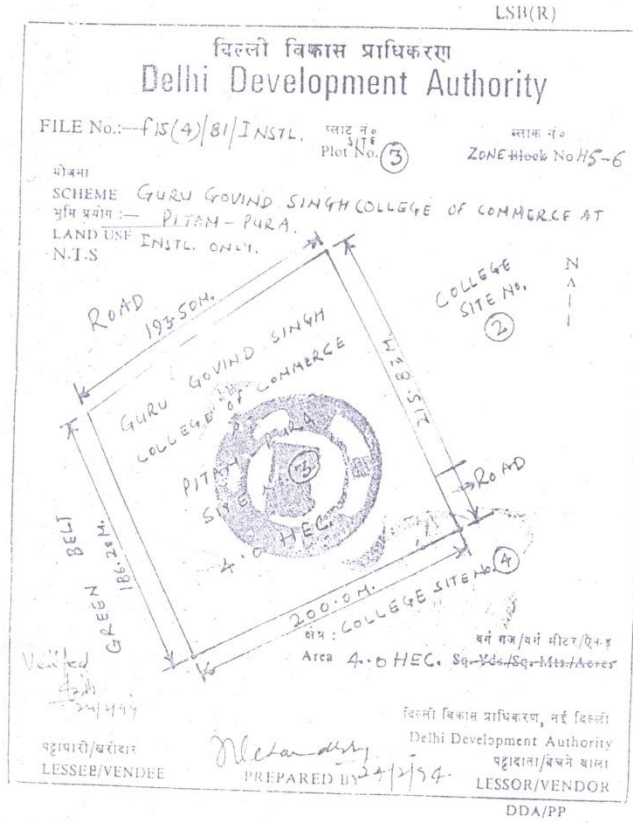 LSB(R)
दिल्ली विकास प्राधिकरण
Delhi Development Authority
FILE No.:— F15(4)/81/INSTL. प्लाट नं० SITE Plot No. (3) ब्लाक नं० ZONE Block No H5-6
योजना
SCHEME GURU GOVIND SINGH COLLEGE OF COMMERCE AT
भूमि प्रयोग :— PITAM-PURA.
LAND USE INSTL. ONLY.
N.T.S
N
ROAD
193.50M.
COLLEGE
SITE NO.
(2)
GURU GOVIND SINGH
COLLEGE OF COMMERCE
PITAM PURA
SITE (3)
4.0 HEC.
ROAD
GREEN BELT
186.20M.
200.0M.
COLLEGE SITE NO. (4)
क्षेत्र : वर्ग गज/वर्ग मीटर/एकड़
Area 4.0 HEC. Sq. Yds./Sq. Mts./Acres
Verified
दिल्ली विकास प्राधिकरण, नई दिल्ली
Delhi Development Authority
पट्टाधारी/खरीदार पट्टादाता/बेचने वाला
LESSEE/VENDEE PREPARED BY LESSOR/VENDOR
DDA/PP